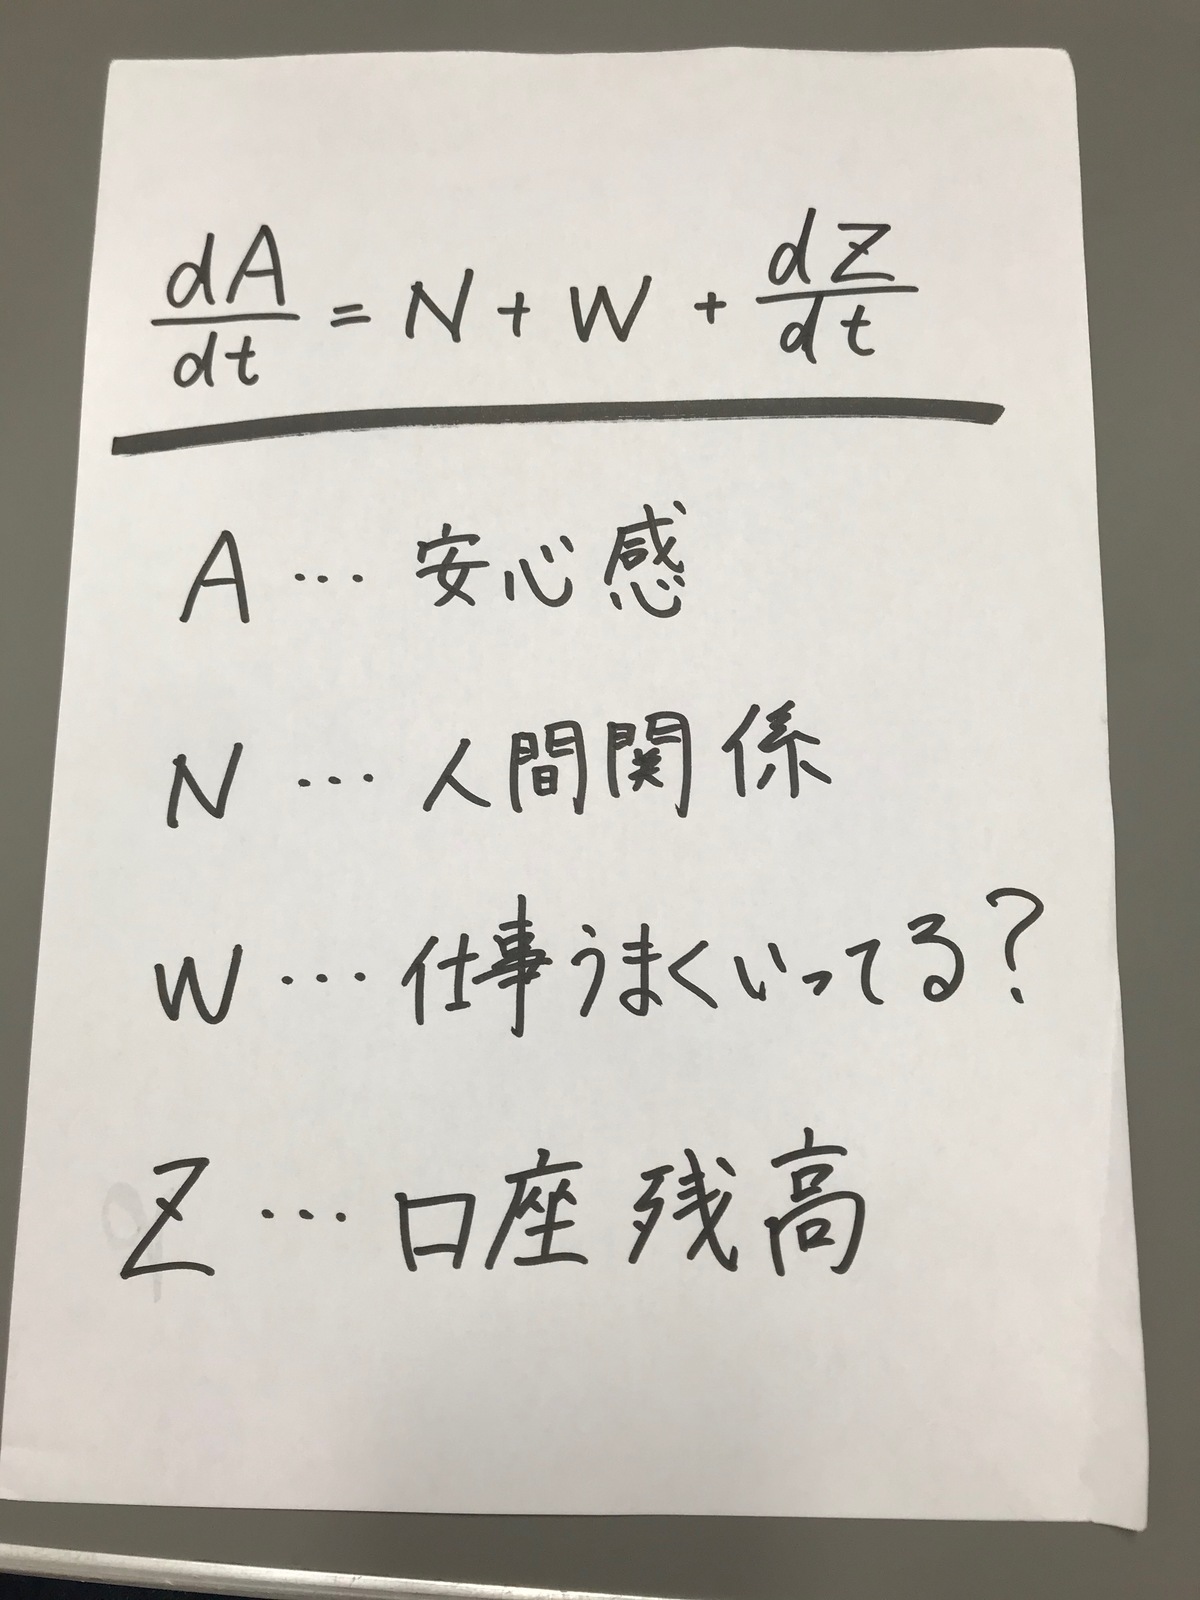 dA/dt = N + W + dZ/dt
A … 安心感
N … 人間関係
W … 仕事うまくいってる?
Z … 口座残高